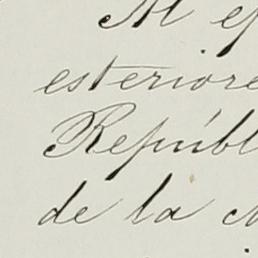 Al ef
esteriore
Repúbl
de la